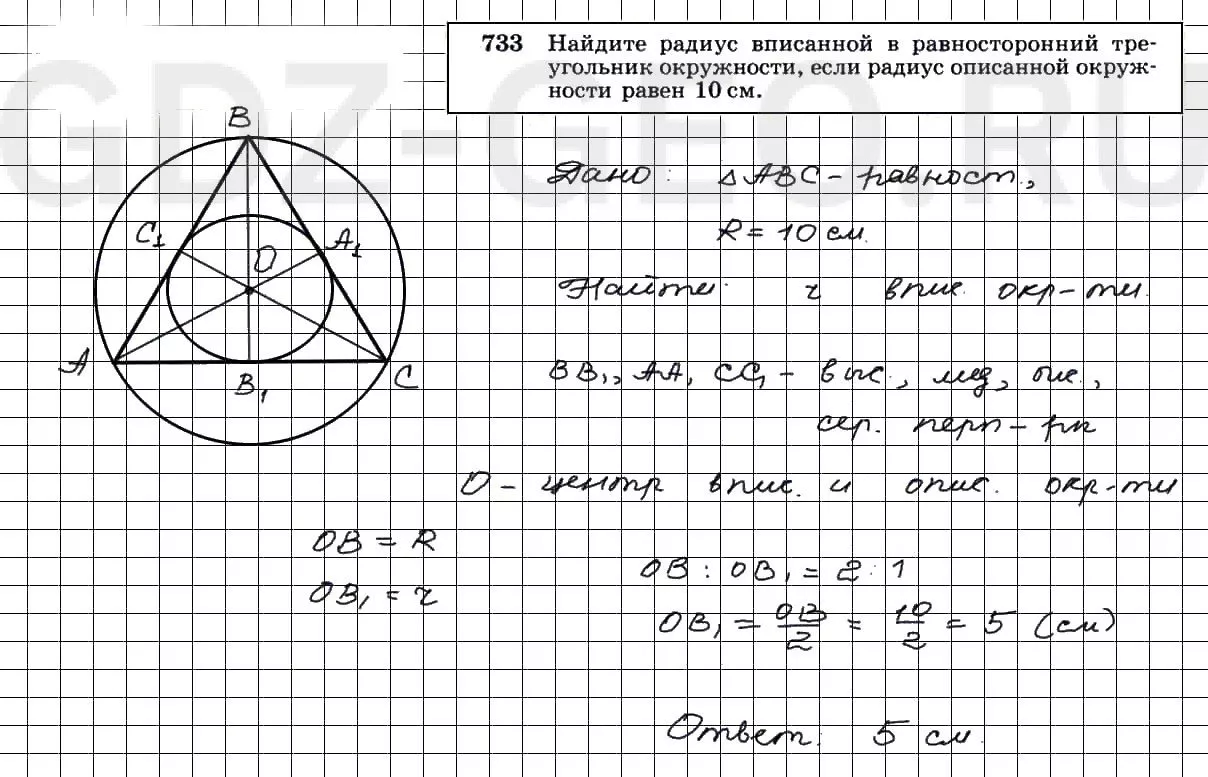 GDZ-GEO.RU
733 Найдите радиус вписанной в равносторонний тре-
угольник окружности, если радиус описанной окруж-
ности равен 10 см.
B
Дано: △ABC - равност.,
R = 10 см.
C₁ A₁
O
Найти: r впис. окр-ти.
A B₁ C
BB₁, AA₁ CC₁ - выс., мед, бис.,
сер. перп - ры
O - центр впис. и опис. окр-ти
OB = R
OB₁ = r
OB : OB₁ = 2 : 1
OB₁ = OB/2 = 10/2 = 5 (см)
Ответ: 5 см.